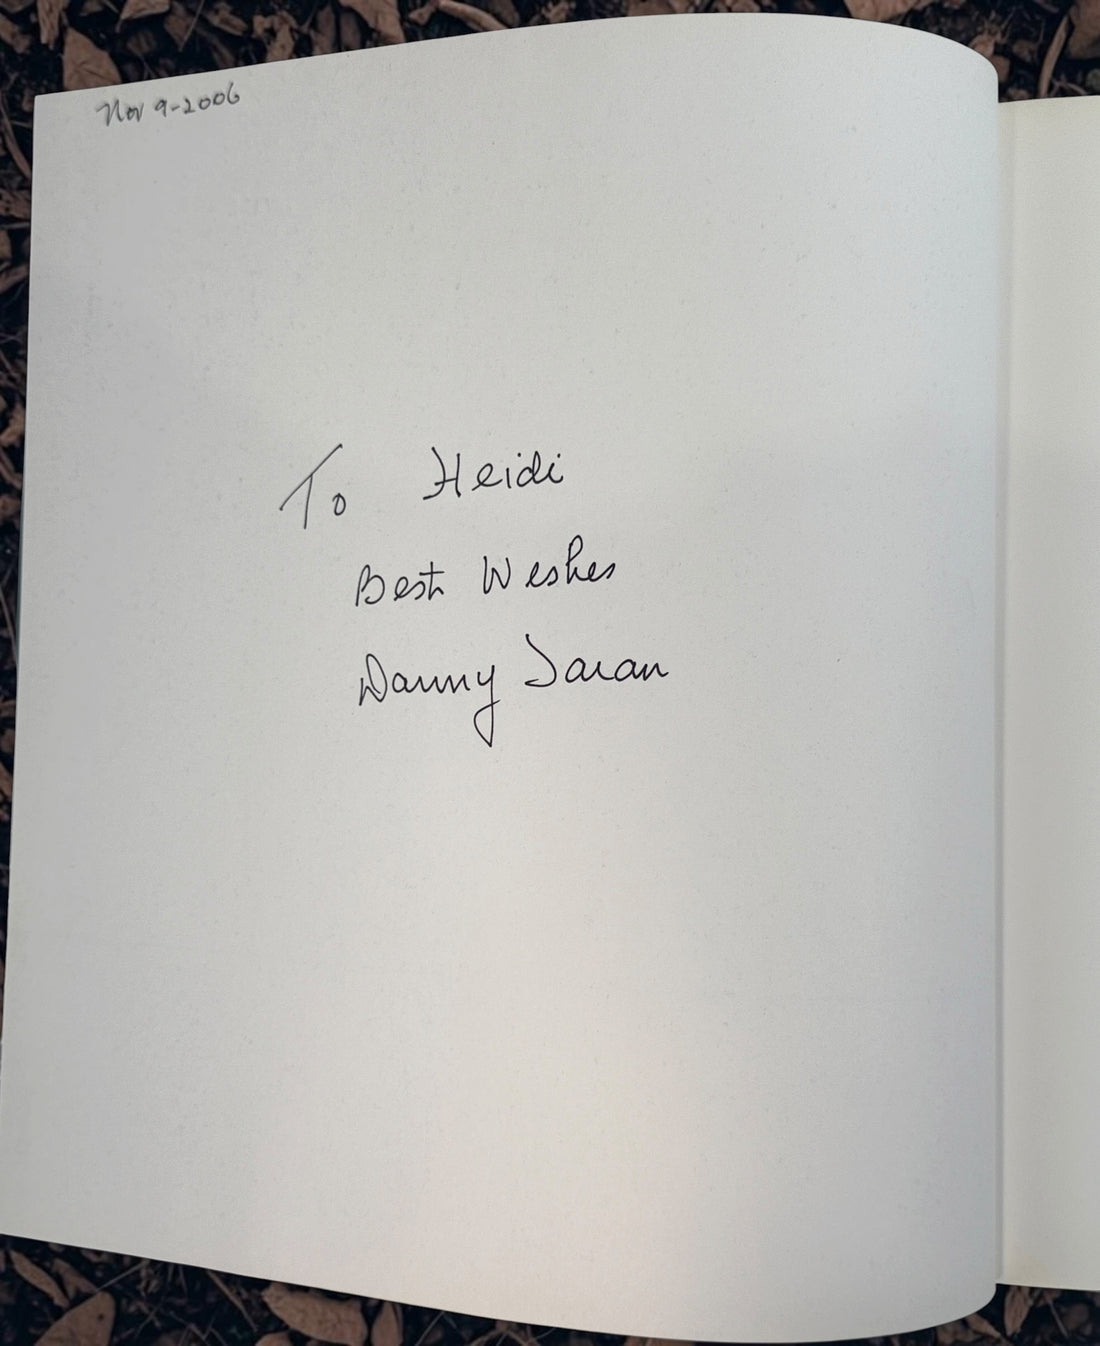 Nov 9-2006
To Heidi
Best Wishes
Danny Saran